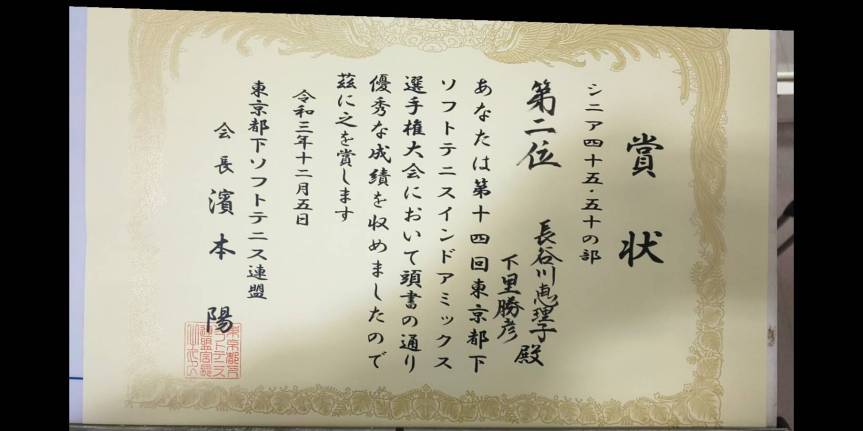 賞状
シニア四十五・五十の部
第二位
長谷川恵理子
下里勝彦
殿
あなたは第十四回東京都下
ソフトテニスインドアミックス
選手権大会において頭書の通り
優秀な成績を収めましたので
茲に之を賞します
令和三年十二月五日
東京都下ソフトテニス連盟
会長 濱本陽